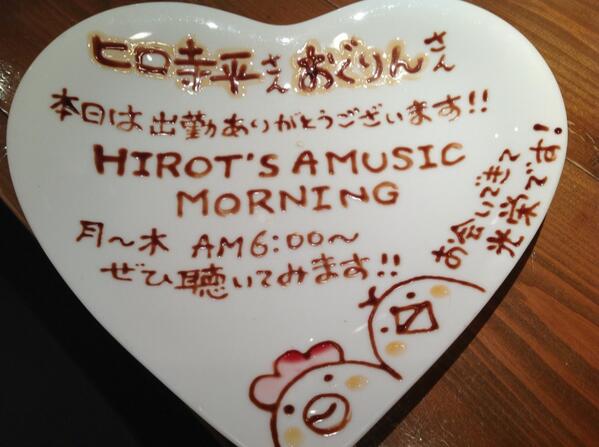 ヒロ寺平さん おぐりんさん
本日は出勤ありがとうございます!!
HIROT'S AMUSIC
MORNING
月〜木 AM6:00〜
ぜひ聴いてみます!!
お会いできて
光栄です!